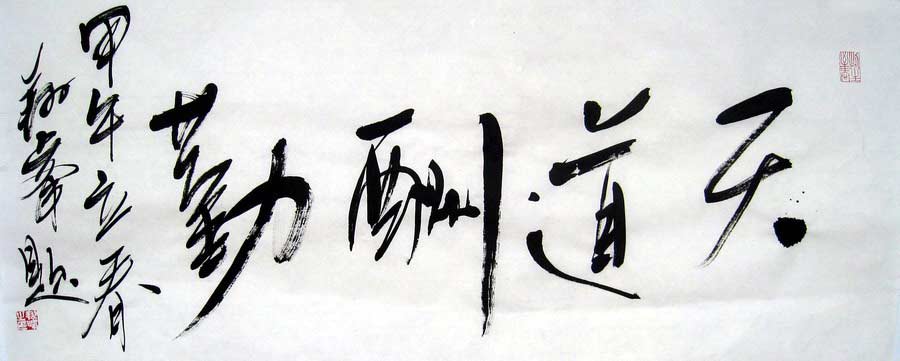 天道酬勤
甲午立春
翔峯題